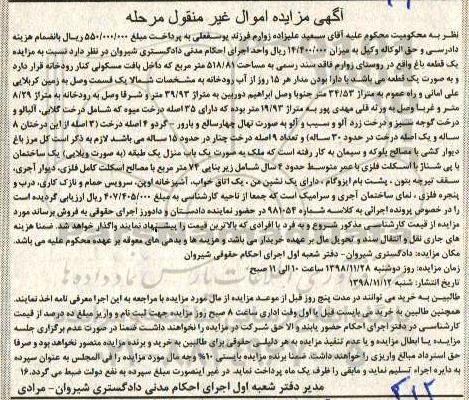 آگهی مزایده اموال غیر منقول مرحله
نظر به محکومیت محکوم علیه آقای سعید علیزاده زوارم فرزند یوسفعلی به پرداخت مبلغ ۵۵۰/۰۰۰/۰۰۰ ریال بانضمام هزینه
دادرسی و حق الوکاله وکیل به میزان ۱۴/۴۰۰/۰۰۰ ریال واحد اجرای احکام مدنی دادگستری شیروان در نظر دارد نسبت به مزایده
یک قطعه باغ واقع در روستای زوارم فاقد سند رسمی به مساحت ۵۱۸/۸۱ متر مربع که داخل بافت مسکونی کنار رودخانه قرار دارد
و به صورت یک قطعه می باشد. با دارا بودن مدار هر ۱۵ روز از آب رودخانه به مشخصات شمالا یک قسمت وصل به زمین کربلایی
علی امانی و راه عموم به متراژ ۳۴/۵۳ متر جنوبا وصل ابراهیم دوربین به متراژ ۳۹/۹۳ متر و شرقا وصل به رودخانه به متراژ ۸/۲۹
متر و غربا وصل به ورثه قلی مهدی پور به متراژ ۱۹/۹۳ متر بوده که دارای ۳۵ اصله درخت میوه که شامل درخت گلابی، آلبالو و
درخت گوجه سبز و درخت زرد آلو و سیب و آلو به صورت نهال چهارساله و بارور - گردو ۴ اصله درخت (۳ اصله از این درختان ۸
ساله و یک اصله درخت در حدود ۳۰ ساله) و تعداد ۹ اصله درخت چنار در حدود ۱۵ ساله می باشد لازم به ذکر است کل مرز باغ
دیوار کشی با مصالح بلوکه و سیمان به کار رفته است که ملک به صورت یک باب منزل یک طبقه (به صورت ویلایی) یک ساختمان
با پی شناژ با اسکلت فلزی با عمر متوسط حدود ۴ سال شامل زیر بنایی ۷۴ متر مربع با مصالح اسکلت کامل فلزی، دیوار آجری،
سقف تیرچه بتون، پشت بام ایزوگام، دارای یک نشین من، یک اتاق خواب، آشپزخانه اوپن، سرویس حمام و نازک کاری، درب و
پنجره فلزی، نمای ساختمان آجری و سرامیک است که جمعا از ناحیه کارشناسی به مبلغ ۴۰۷/۴۰۵/۰۰۰ ریال ارزیابی گردیده است
را در خصوص پرونده اجرائی به کلاسه شماره ۹۸۱۰۵۳ در حضور نماینده دادستان و دادورز اجرای حقوقی به فروش برساند مورد
مزایده از قیمت کارشناسی مذکور شروع و به فرد یا افرادی که بالاترین قیمت را پیشنهاد نمایند واگذار خواهد شد. ضمنا هزینه
های جاری نقل و انتقال سند و تحویل مال بر عهده خریدار می باشد و هزینه ها و بدهی های معوقه بر عهده محکوم علیه می باشد.
مکان مزایده: دادگستری شیروان- دفتر شعبه اول اجرای احکام حقوقی شیروان
زمان مزایده: روز دوشنبه ۱۳۹۸/۱۱/۲۸ ساعت ۱۰ الی ۱۱ صبح
تاریخ انتشار: شنبه ۱۳۹۸/۱۱/۱۲
طالبین به خرید می توانند در مدت پنج روز قبل از موعد از مزایده مال مورد مزایده با مراجعه به این اجرا معرفی نامه اخذ نمایند.
همچنین طالبین به خرید می بایست قبل یا اول وقت اداری ساعت ۸ صبح روز مزایده جهت ثبت نام و واریز مبلغ ده درصد از قیمت
کارشناسی در دفتر اجرای احکام حضور یابند و الا حق شرکت در مزایده را نخواهند داشت ضمنا در صورت عدم برگزاری جلسه
مزایده یا ابطال مزایده و یا عدم تنفیذ مزایده به هر دلیلی، حقوقی برای طالبین به خرید و برنده مزایده متصور نخواهد بود و صرفا
حق استرداد مبالغ واریزی را خواهند داشت. ضمنا برنده مزایده بایستی ۱۰% وجه مال مورد مزایده را فی المجلس به عنوان سپرده
به دایره اجراء تسلیم نماید و مابقی را ظرف یک ماه پرداخت نماید. در غیر اینصورت مبلغ سپرده به نفع دولت ضبط می گردد. ۱۶
مدیر دفتر شعبه اول اجرای احکام مدنی دادگستری شیروان- مرادی